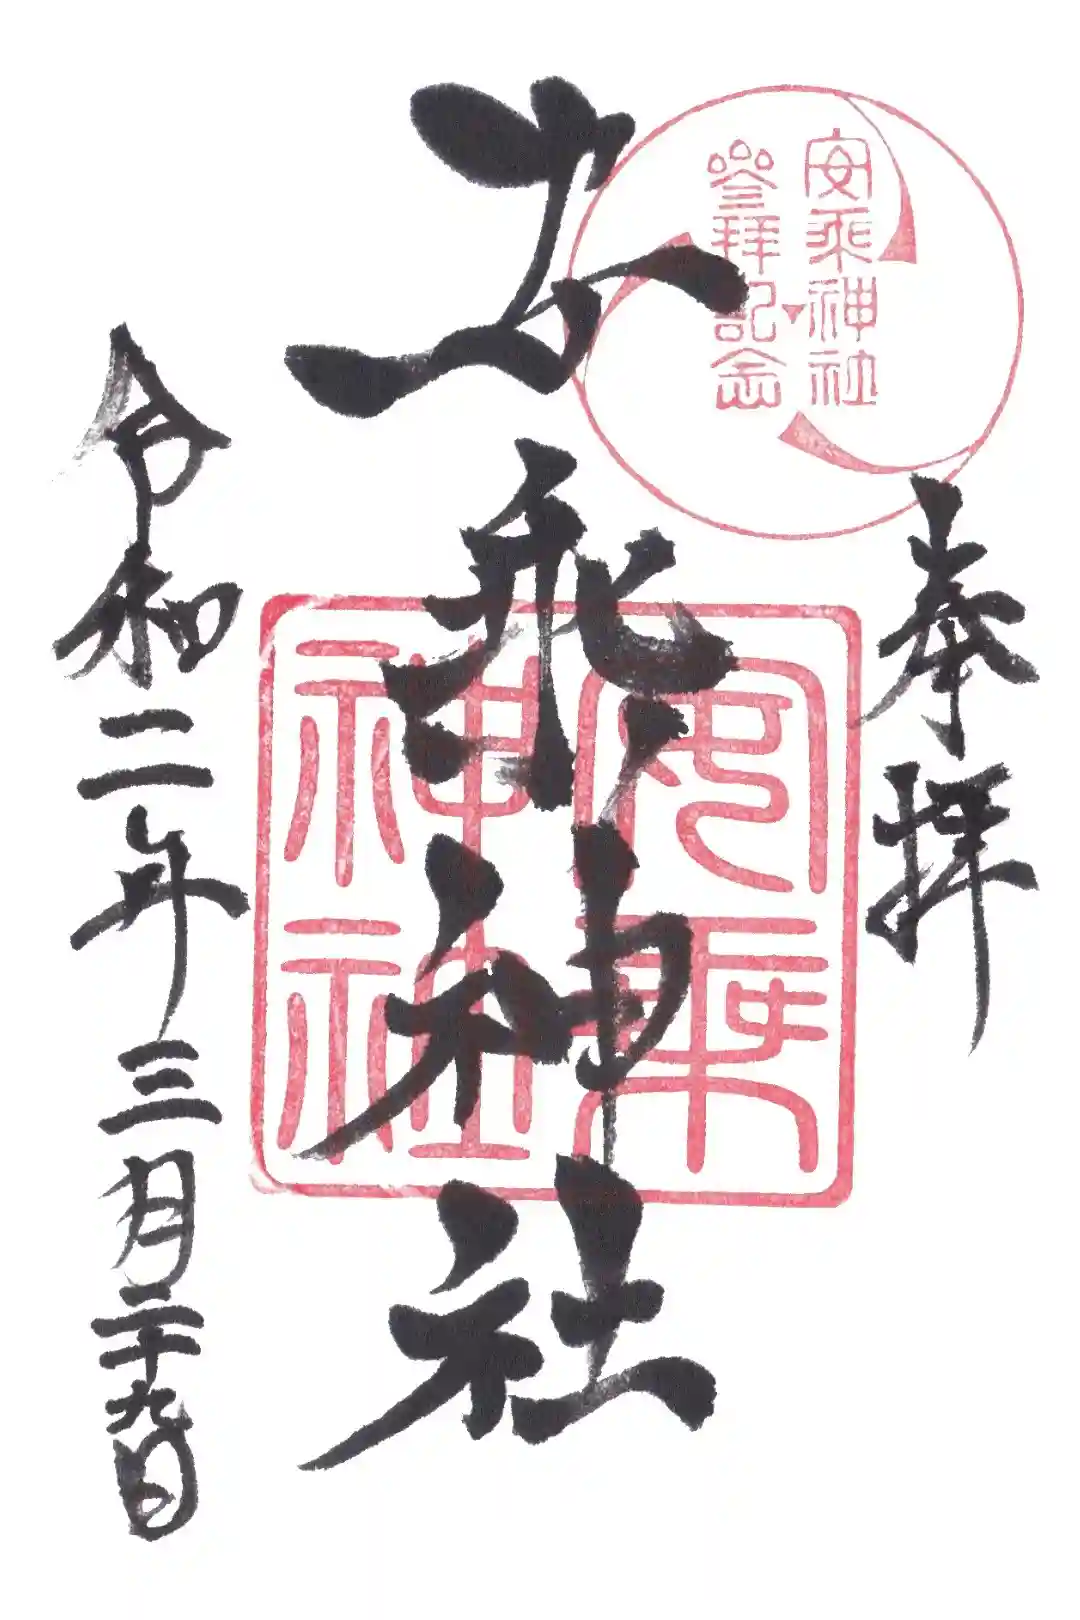 奉拝
安乗神社
参拝記念
安乗神社
安乗
神社
令和二年三月二十九日